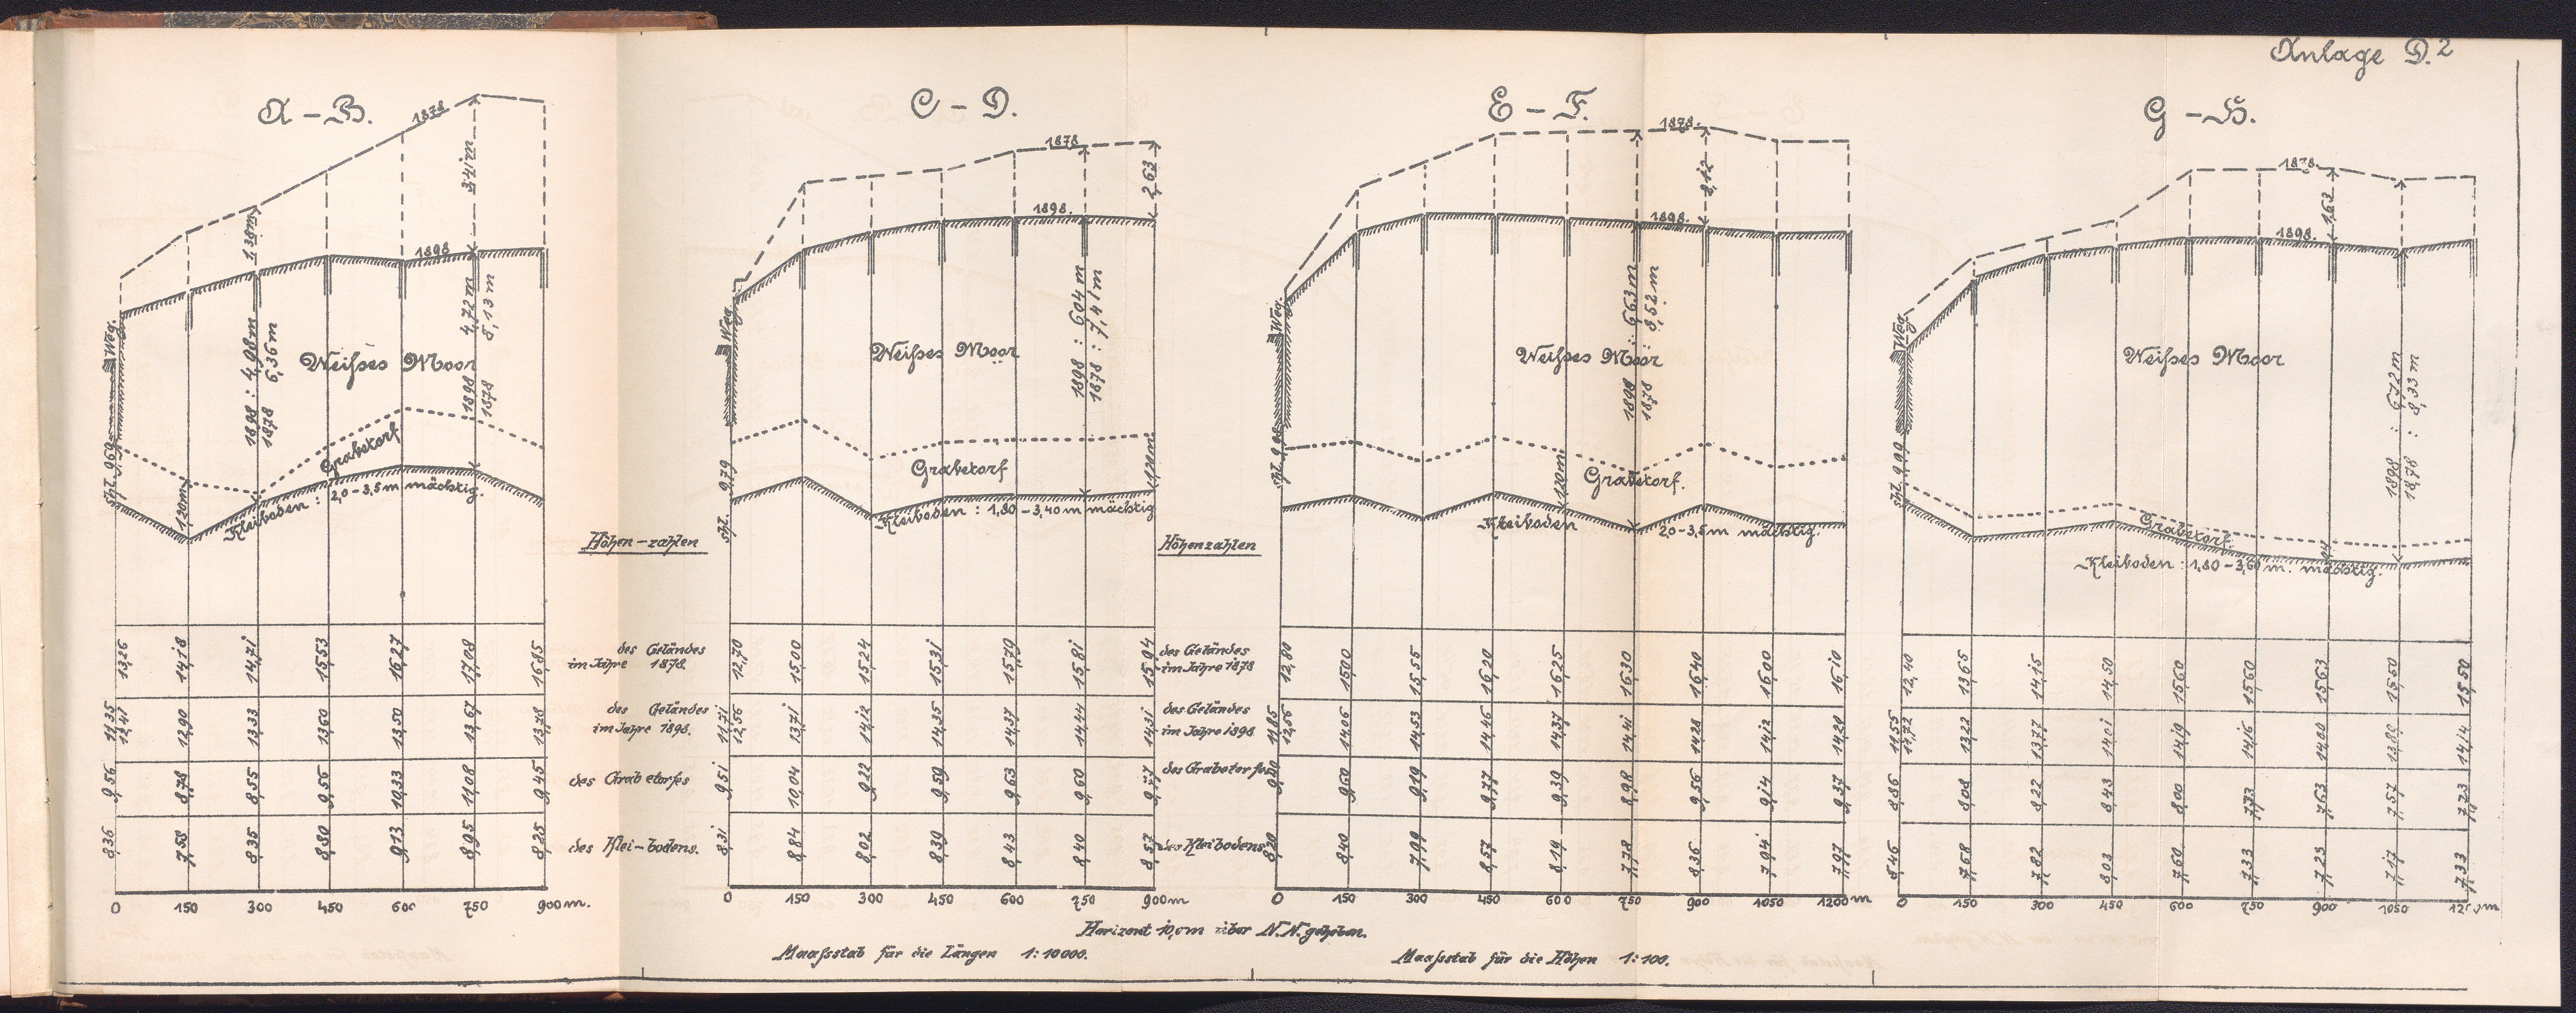 Anlage D.2
A – B.
1878
1,38m
3,41m
1898
Weg.
1898 : 4,98m
1878 6,36m
Weißes Moor
1898 4,72m
1878 8,13m
Grabetorf
1,20m
Kleiboden : 2,0–3,5m mächtig.
C – D.
1878
2,63
1898.
Weg.
Weißes Moor
1898 : 6,04m
1878 : 7,41m
9,79
Grabetorf
1,20m
Kleiboden : 1,80–3,40m mächtig
E – F.
1878.
2,12
1898.
Weg.
Weißes Moor
1898 : 6,63m
1878 : 8,52m
Grabetorf.
1,20m
Kleiboden 2,0–3,5m mächtig.
G – H.
1878.
1,63
1898.
Weg.
Weißes Moor
1898 : 6,72m
1878 : 8,33m
Grabetorf.
Kleiboden : 1,80–3,60m. mächtig.
Höhen–zahlen
Höhenzahlen
13,26 14,18 14,71 15,53 16,27 17,08 16,85
des Geländes
im Jahre 1878.
12,70 15,00 15,24 15,31 15,70 15,81 15,94
des Geländes
im Jahre 1878
12,80 15,00 15,55 16,20 16,25 16,30 16,40 16,00 16,10
12,40 13,65 14,15 14,50 15,60 15,60 15,63 15,50 15,50
11,35
12,41 12,90 13,33 13,60 13,50 13,67 13,78
des Geländes
im Jahre 1898.
11,71
12,56 13,71 14,12 14,35 14,37 14,44 14,31
des Geländes
im Jahre 1898
11,85
12,56 14,06 14,53 14,46 14,37 14,41 14,28 14,12 14,20
11,55
11,72 13,22 13,77 14,01 14,19 14,16 14,00 13,89 14,14
9,56 8,78 8,55 9,56 10,33 11,08 9,45
des Grabetorfes
9,51 10,04 9,22 9,59 9,63 9,60 9,77
des Grabetorfes
9,40 9,60 9,19 9,77 9,39 8,98 9,56 9,14 9,37
8,86 8,08 8,22 8,43 8,00 7,73 7,63 7,57 7,73
8,36 7,58 8,35 8,80 9,13 8,95 8,25
des Klei–bodens.
8,31 8,84 8,02 8,39 8,43 8,40 8,57
des Kleibodens
8,20 8,40 7,99 8,57 8,19 7,78 8,36 7,94 7,97
8,46 7,68 7,82 8,03 7,60 7,33 7,23 7,17 7,33
0 150 300 450 600 750 900m.
0 150 300 450 600 750 900m
0 150 300 450 600 750 900 1050 1200m
0 150 300 450 600 750 900 1050 1200m
Horizont 10,0m über N.N. gehoben.
Maaßstab für die Längen 1:10000.
Maaßstab für die Höhen 1:100.